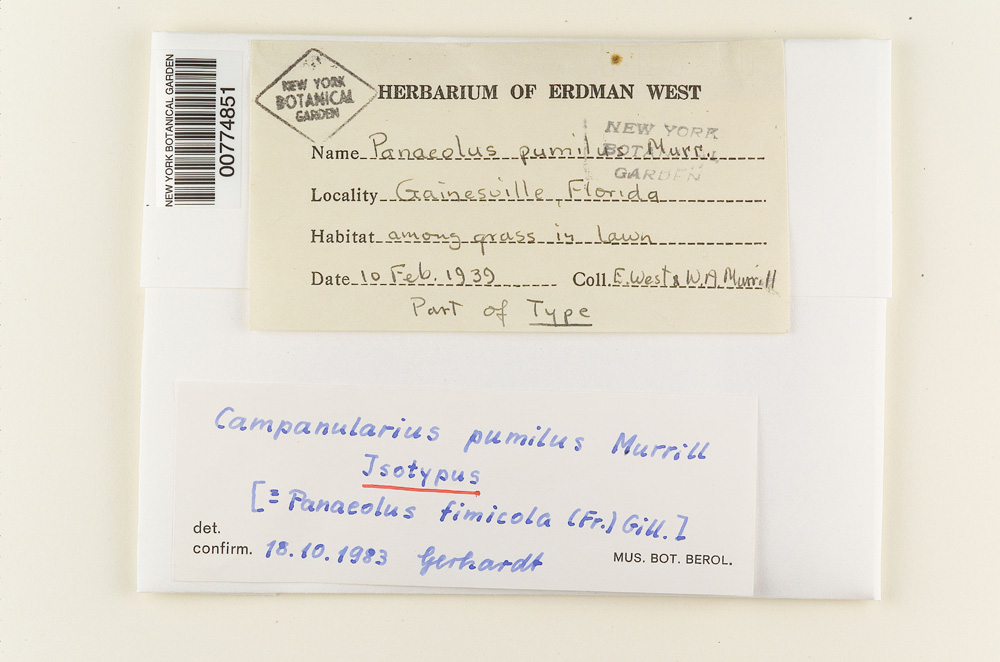 NEW YORK BOTANICAL GARDEN
00774851
NEW YORK
BOTANICAL
GARDEN
HERBARIUM OF ERDMAN WEST
NEW YORK
BOTANICAL
GARDEN
Name Panaeolus pumilus Murr.
Locality Gainesville, Florida
Habitat among grass in lawn
Date 10 Feb. 1939 Coll. E. West & W. A. Murrill
Part of Type
Campanularius pumilus Murrill
Isotypus
[≡ Panaeolus fimicola (Fr.) Gill.]
det.
confirm. 18.10.1983 Gerhardt MUS. BOT. BEROL.